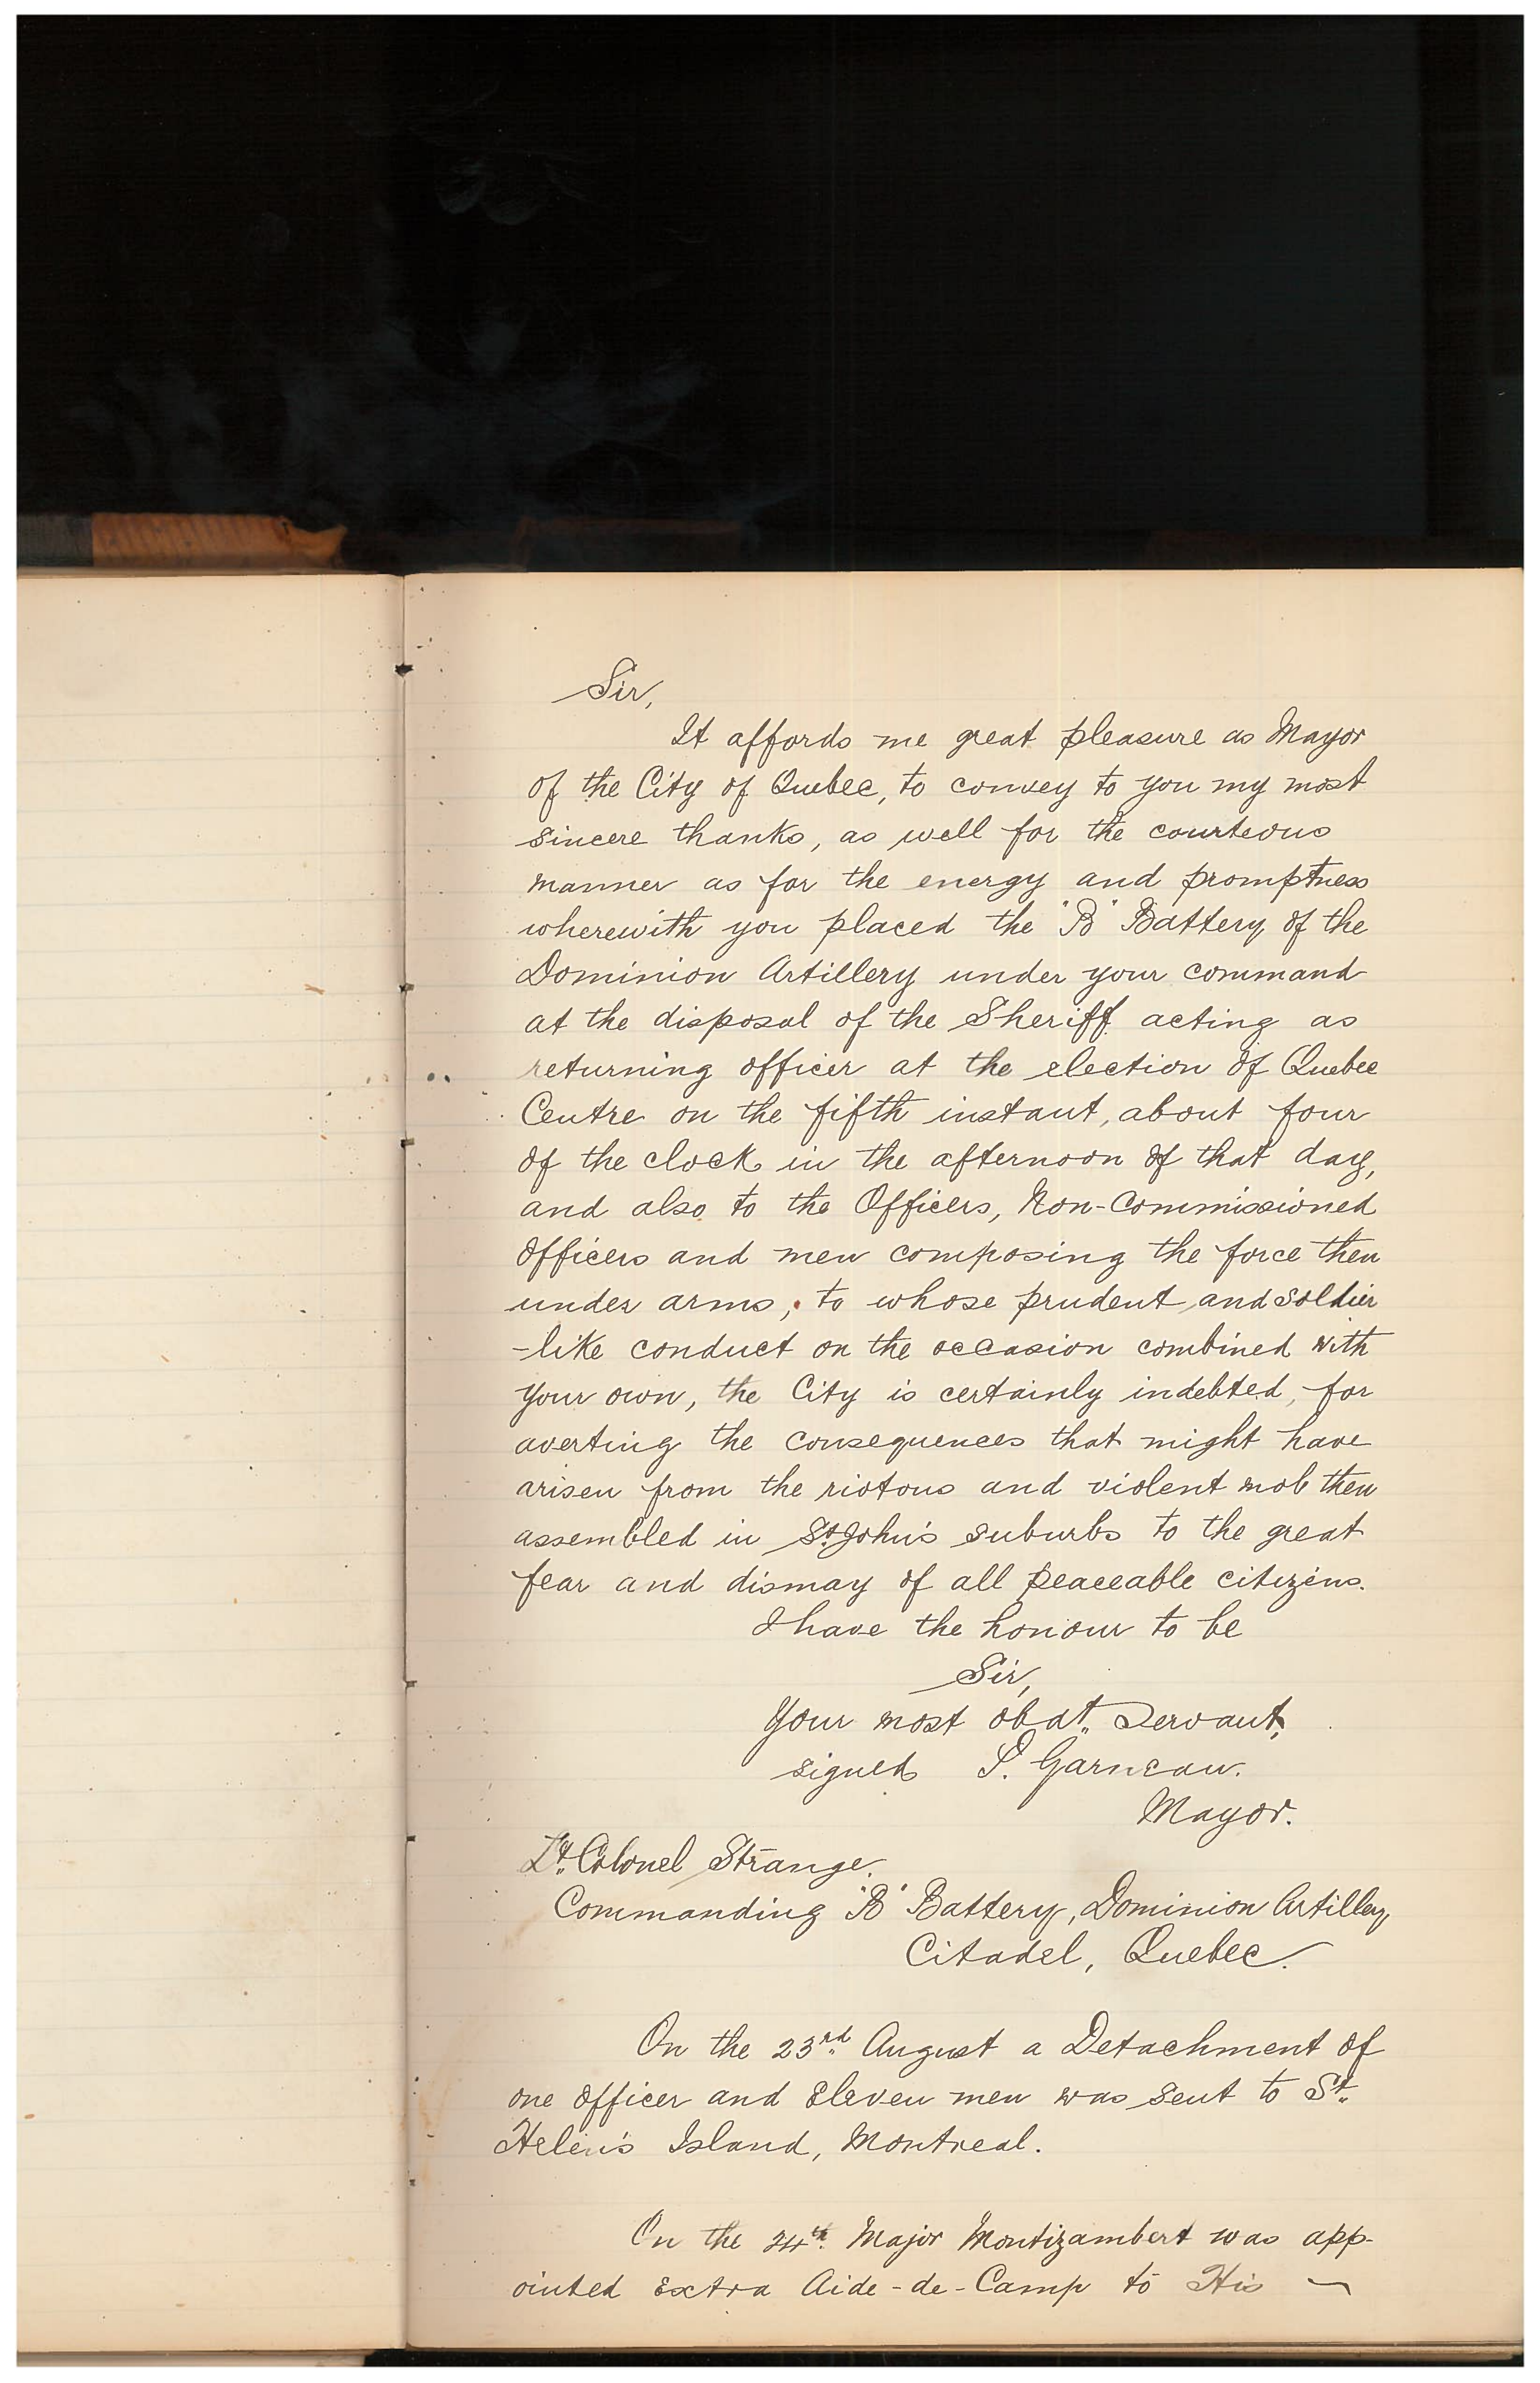 Sir,
It affords me great pleasure as Mayor
of the City of Quebec, to convey to you my most
sincere thanks, as well for the courteous
manner as for the energy and promptness
wherewith you placed the "B" Battery of the
Dominion Artillery under your command
at the disposal of the Sheriff acting as
returning officer at the election of Quebec
Centre on the fifth instant, about four
of the clock in the afternoon of that day,
and also to the Officers, Non-Commissioned
Officers and men composing the force then
under arms, to whose prudent and soldier
-like conduct on the occasion combined with
your own, the City is certainly indebted, for
averting the consequences that might have
arisen from the riotous and violent mob then
assembled in St. John's suburbs to the great
fear and dismay of all peaceable citizens.
I have the honour to be
Sir,
Your most obdt. Servant,
signed P. Garneau.
Mayor.
Lt. Colonel Strange.
Commanding "B" Battery, Dominion Artillery,
Citadel, Quebec.
On the 23rd. August a Detachment of
one officer and Eleven men was sent to St.
Helen's Island, Montreal.
On the 24th. Major Montizambert was app-
ointed Extra Aide-de-Camp to His